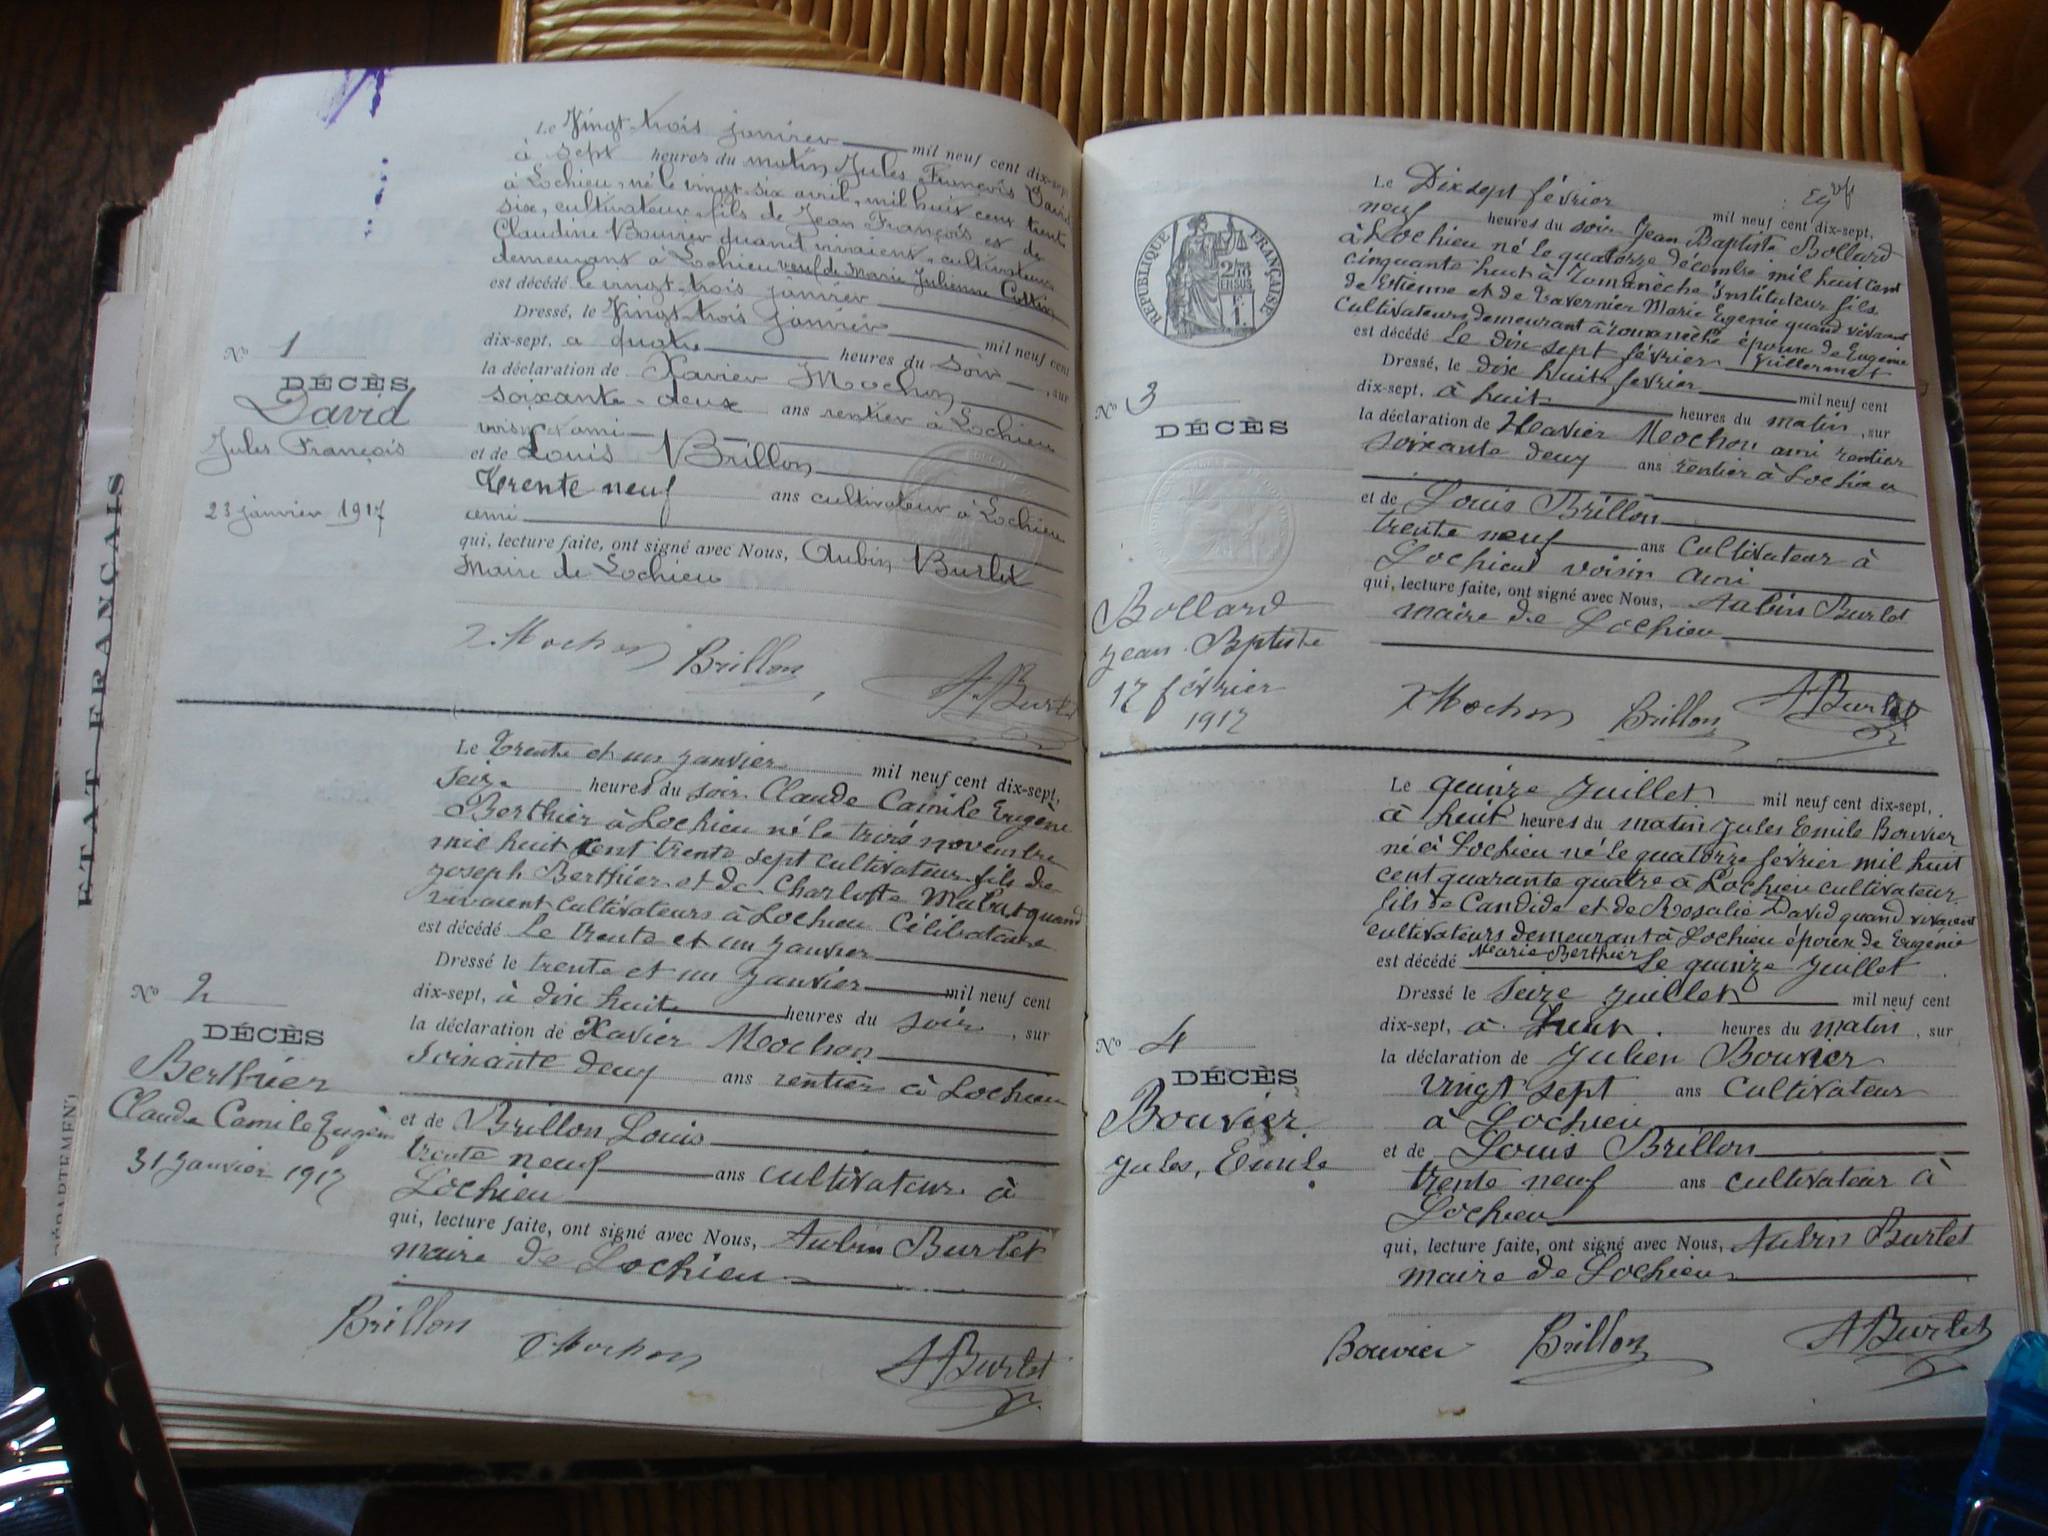 Le Vingt-trois janvier mil neuf cent dix-sept
à sept heures du matin Jules François David
à Lochieu, né le vingt-six avril, mil huit cent trente
six, cultivateur, fils de Jean François et de
Claudine Bouvier quand vivaient, cultivateurs
demeurant à Lochieu veuf de Marie Julienne
est décédé le vingt-trois janvier
Dressé, le Vingt-trois janvier mil neuf cent
dix-sept, à quatre heures du soir, sur
la déclaration de Xavier Mochon
soixante-deux ans rentier à Lochieu
voisin ami
et de Louis Brillon
Trente neuf ans cultivateur à Lochieu
ami
qui, lecture faite, ont signé avec Nous, Aubin Burlet
Maire de Lochieu
X. Mochon Brillon A. Burlet
No 1
DÉCÈS
David
Jules François
23 janvier 1917
Le Trente et un janvier mil neuf cent dix-sept,
seize heures du soir Claude Camille Eugène
Berthier à Lochieu né le trois novembre
mil huit cent trente sept cultivateur fils de
Joseph Berthier et de Charlotte quand
vivaient cultivateurs à Lochieu Célibataire
est décédé Le trente et un janvier
Dressé le trente et un janvier mil neuf cent
dix-sept, à dix huit heures du soir, sur
la déclaration de Xavier Mochon
soixante deux ans rentier à Lochieu
et de Brillon Louis
trente neuf ans cultivateur à
Lochieu
qui, lecture faite, ont signé avec Nous, Aubin Burlet
maire de Lochieu
Brillon X Mochon A Burlet
No 2
DÉCÈS
Berthier
Claude Camile Eugène
31 Janvier 1917
ETAT FRANÇAIS
DÉPARTEMENT
Le Dix sept février mil neuf cent dix-sept,
neuf heures du soir Jean Baptiste Bollard
à Lochieu né le quatorze décembre mil huit cent
cinquante huit à Romanèche Instituteur fils
de Etienne et de Tavernier Marie Eugenie quand vivaient
cultivateurs demeurant à romanèche époux de Eugénie
est décédé Le dix sept février Vuillermet
Dressé, le dix huit février mil neuf cent
dix-sept, à huit heures du matin, sur
la déclaration de Heavier Mochon ami rentier
soixante deux ans rentier à Lochieu
et de Louis Brillon
trente neuf ans cultivateur à
Lochieu voisin ami
qui, lecture faite, ont signé avec Nous, Aubin Burlet
maire de Lochieu
X Mochon Brillon A Burlet
RÉPUBLIQUE FRANÇAISE
No 3
DÉCÈS
Bollard
Jean Bptiste
17 février
1917
Le quinze Juillet mil neuf cent dix-sept,
à huit heures du matin Jules Emile Bouvier
né à Lochieu né le quatorze février mil huit
cent quarante quatre à Lochieu cultivateur
fils de Candide et de Rosalie David quand vivaient
cultivateurs demeurant à Lochieu époux de Eugénie
Marie Berthier
est décédé Le quinze Juillet
Dressé le seize Juillet mil neuf cent
dix-sept, à heures du matin, sur
la déclaration de Julien Bouvier
vingt sept ans cultivateur
à Lochieu
et de Louis Brillon
trente neuf ans cultivateur à
Lochieu
qui, lecture faite, ont signé avec Nous, Aubin Burlet
maire de Lochieu
Bouvier Brillon A Burlet
No 4
DÉCÈS
Bouvier
Jules, Emile